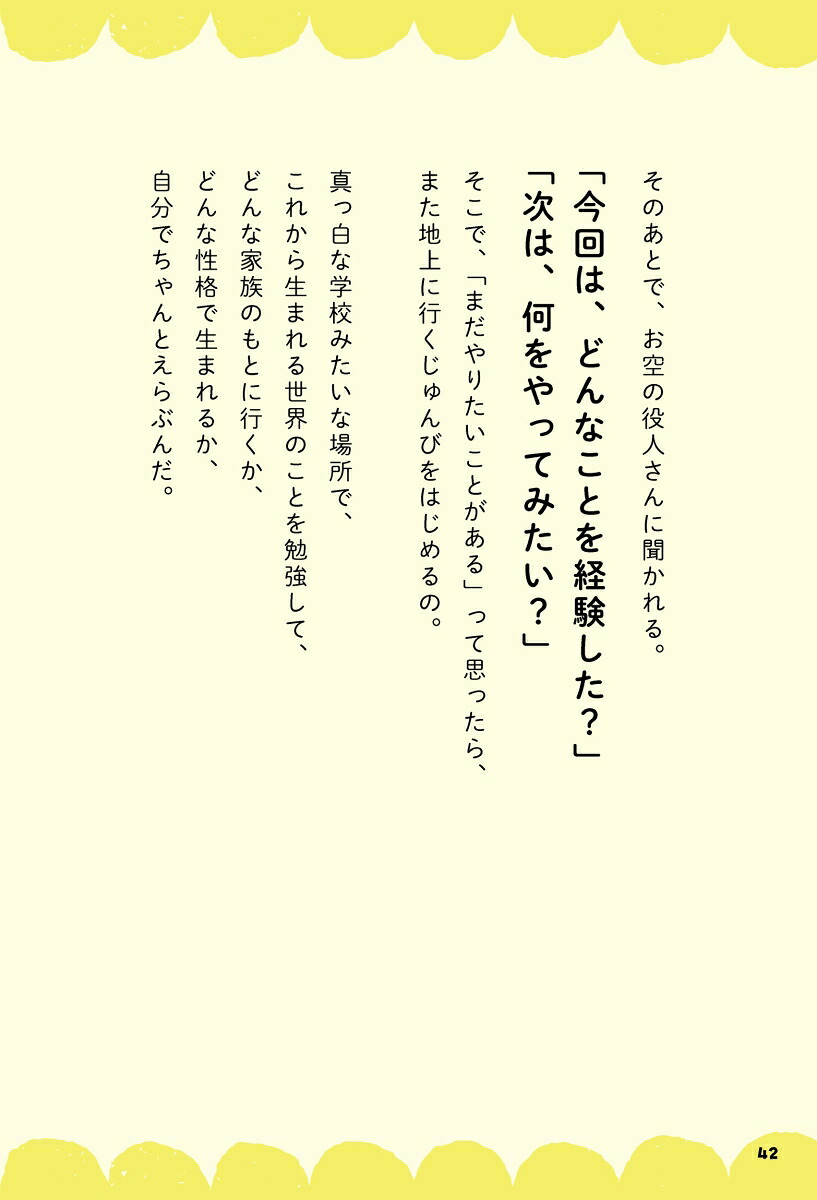 そのあとで、お空の役人さんに聞かれる。
「今回は、どんなことを経験した？」
「次は、何をやってみたい？」
そこで、「まだやりたいことがある」って思ったら、
また地上に行くじゅんびをはじめるの。
真っ白な学校みたいな場所で、
これから生まれる世界のことを勉強して、
どんな家族のもとに行くか、
どんな性格で生まれるか、
自分でちゃんとえらぶんだ。
42